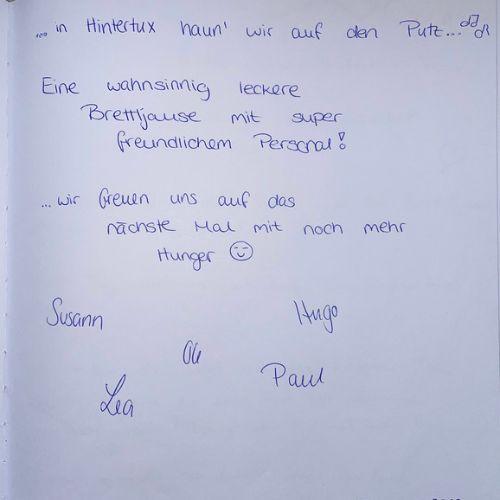 ... in Hintertux haun' wir auf den Putz...
Eine wahnsinnig leckere
Brettljause mit super
freundlichem Personal!
... wir freuen uns auf das
nächste Mal mit noch mehr
Hunger
Susann
Hugo
Paul
Lea